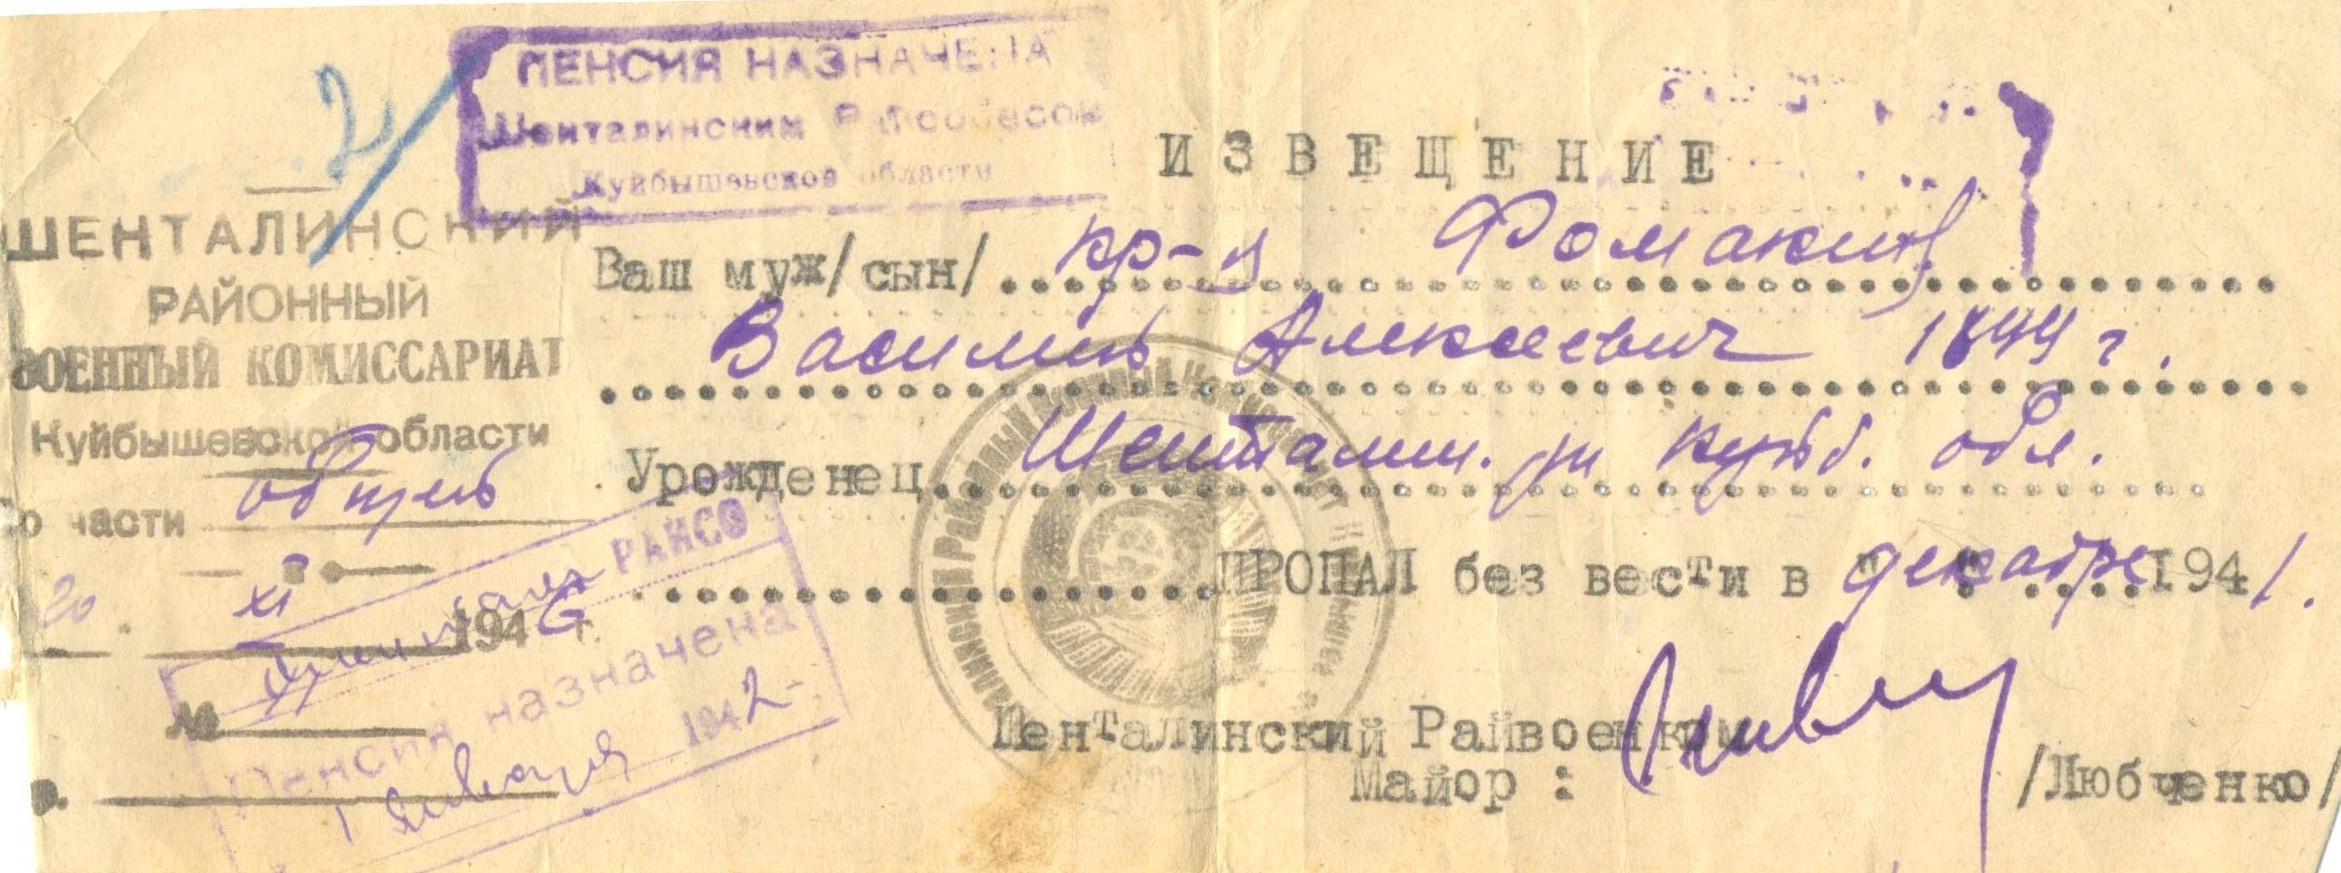 2
ПЕНСИЯ НАЗНАЧЕНА
Шенталинским Райсобесом
Куйбышевской области
ШЕНТАЛИНСКИЙ
РАЙОННЫЙ
ВОЕННЫЙ КОМИССАРИАТ
Куйбышевской области
По части общей
20. XI 1946 г.
№
РАЙСО
Пенсия назначена
1 января 1942
ИЗВЕЩЕНИЕ
Ваш муж/сын/ кр-ц Фомакин
Василий Алексеевич 1899 г.
Урожденец Шенталин. рн Куйб. обл.
ПРОПАЛ без вести в декабре 1941.
Шенталинский Райвоенком
Майор: /Любченко/